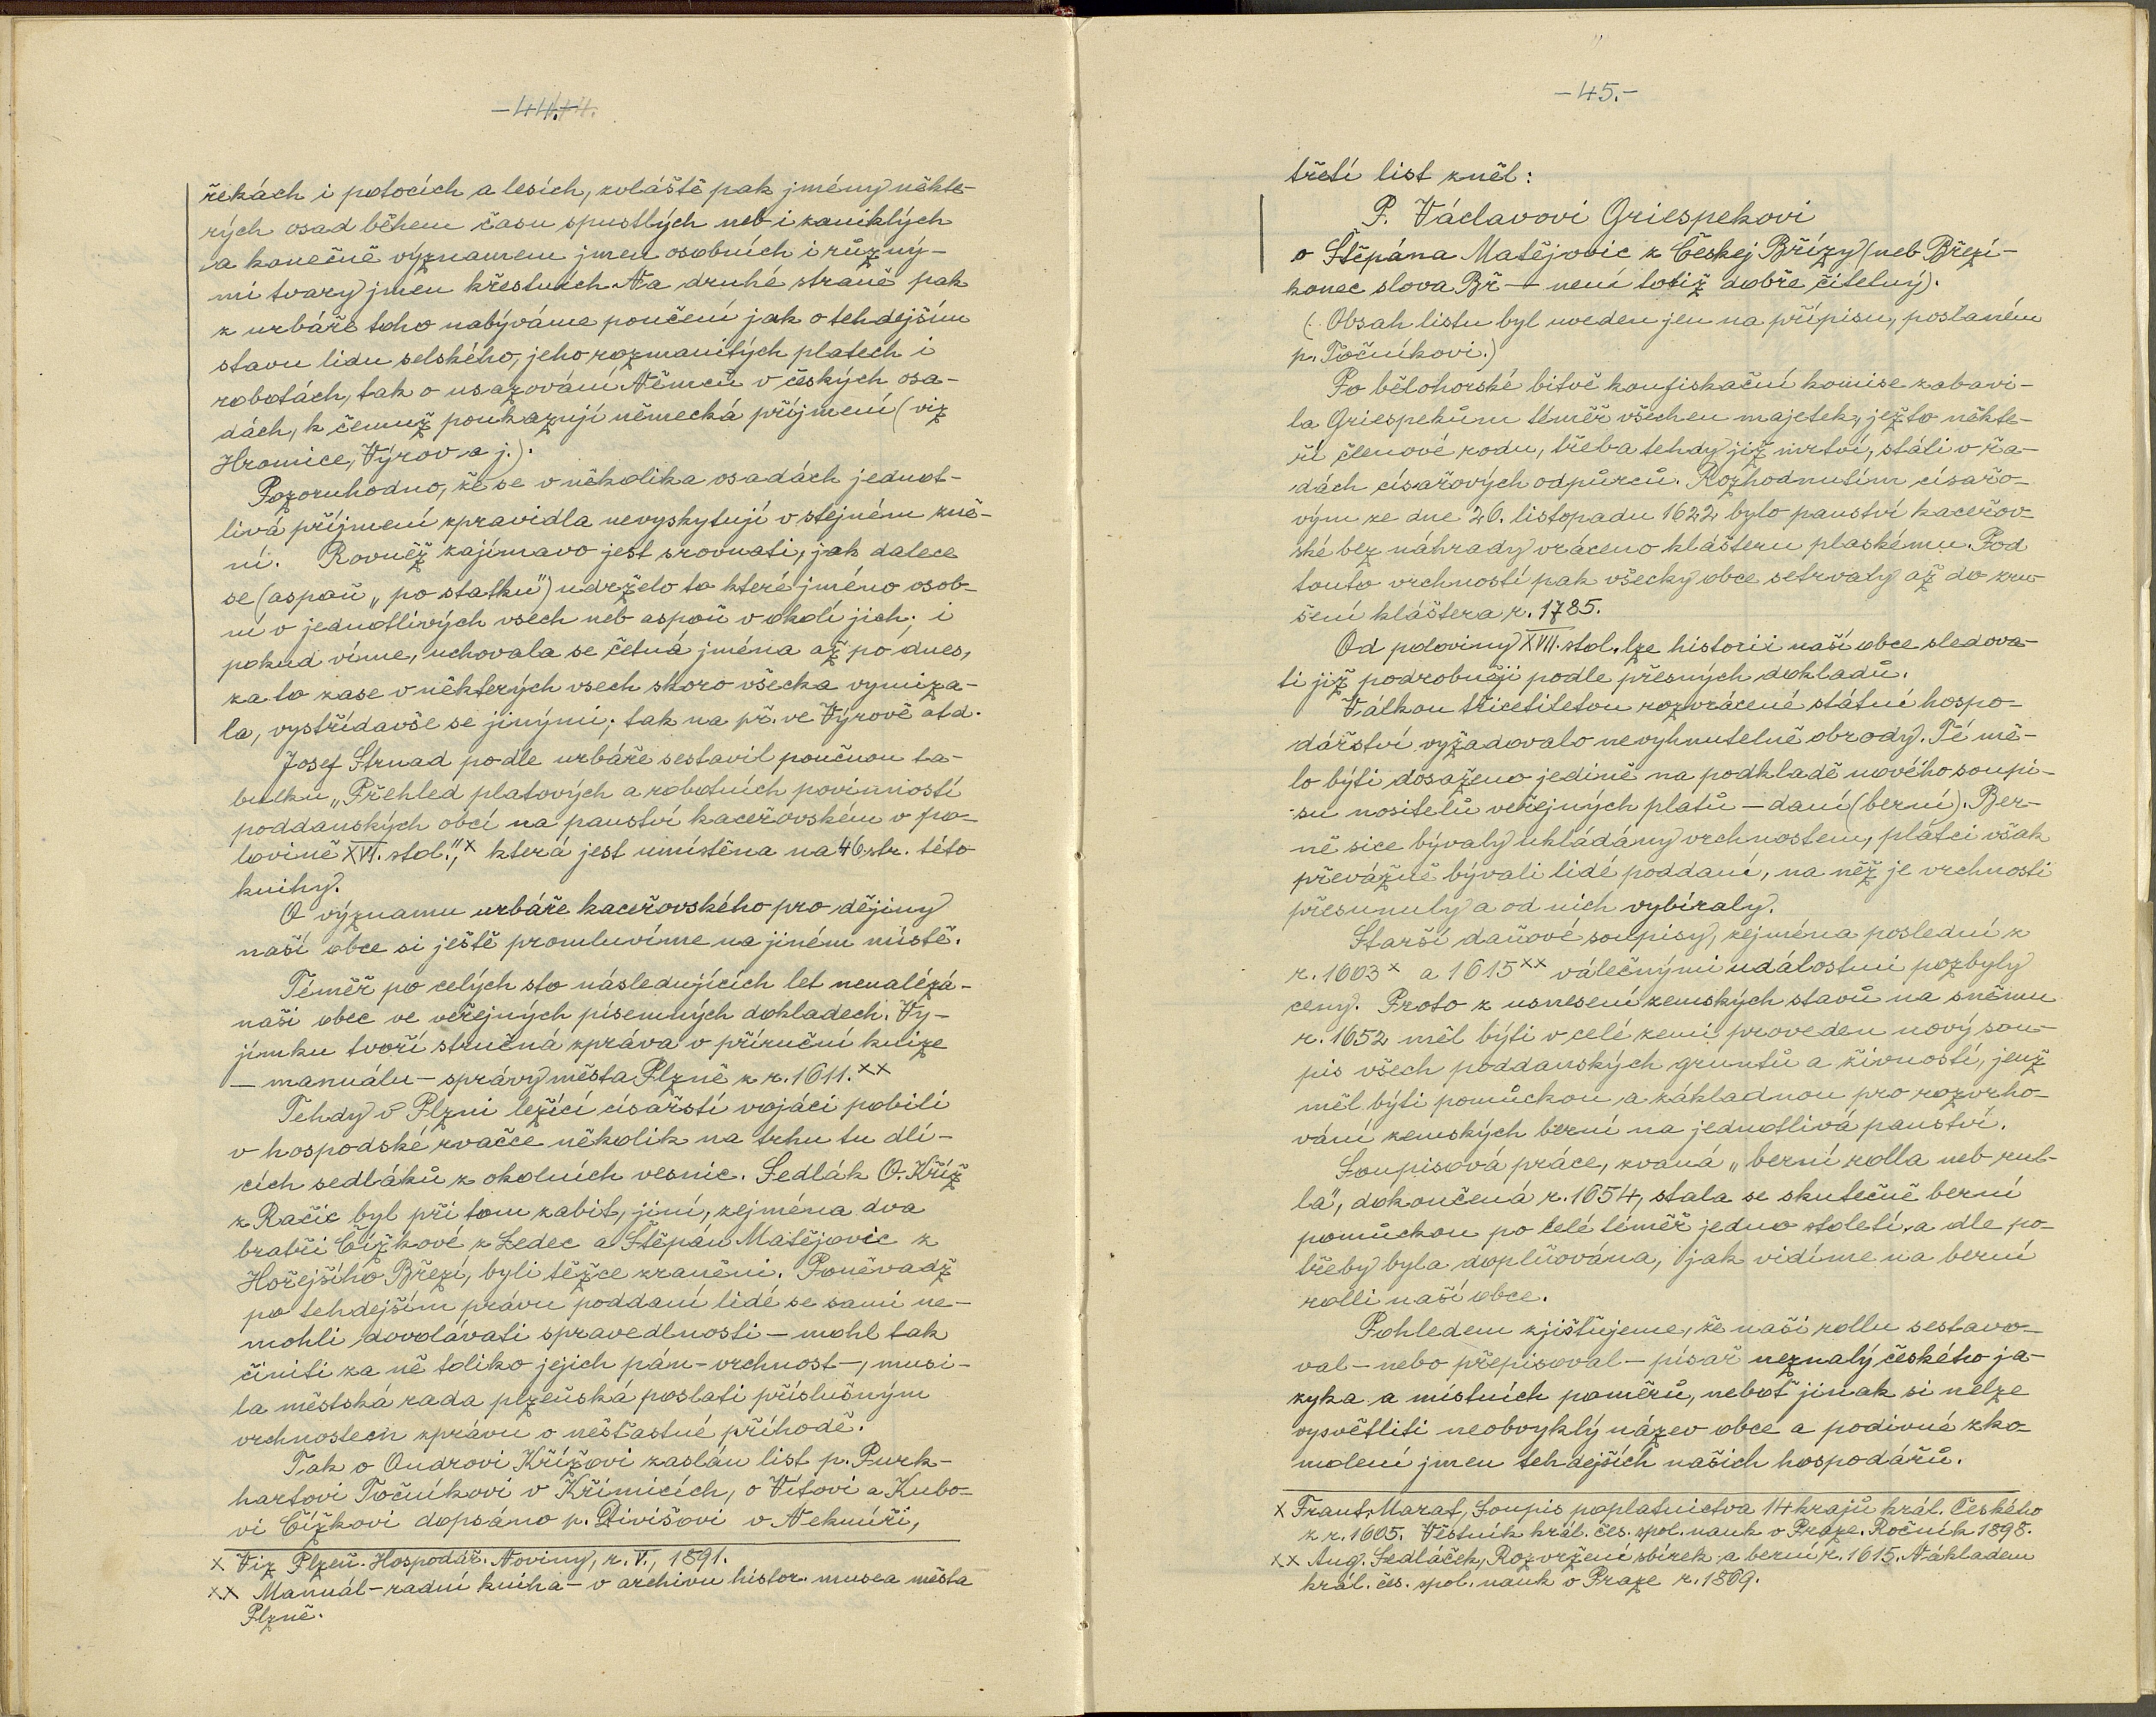 -44.-
řekách i potocích a lesích, zvláště pak jmény někte-
rých osad během času spustlých neb i zaniklých
a konečně významem jmen osobních i různý-
mi tvary jmen křestních. Na druhé straně pak
z urbáře toho nabýváme poučení jak o tehdejším
stavu lidu selského, jeho rozmanitých platech i
robotách, tak o usazování Němců v českých osa-
dách, k čemuž poukazují německá příjmení (viz
Hromice, Výrov a j.).
Pozoruhodno, že se v několika osadách jednot-
livá příjmení zpravidla nevyskytují v stejném zně-
ní. Rovněž zajímavo jest srovnati, jak dalece
se (aspoň „po statku") udrželo to které jméno osob-
ní v jednotlivých vsech neb aspoň v okolí jich; i
pokud víme, uchovala se četná jména až po dnes,
za to zase v některých vsech skoro všecka vymiza-
la, vystřídavše se jinými; tak na př. ve Výrově atd.
Josef Strnad podle urbáře sestavil poučnou ta-
bulku „Přehled platových a robotních povinností
poddanských obcí na panství kaceřovském v po-
lovině XVI. stol.",x která jest umístěna na 46 str. této
knihy.
O významu urbáře kaceřovského pro dějiny
naší obce si ještě promluvíme na jiném místě.
Téměř po celých sto následujících let nenalézá-
naši obec ve veřejných písemných dokladech. Vý-
jimku tvoří stručná zpráva v příruční knize
- manuálu - správy města Plzně z r. 1611.xx
Tehdy v Plzni ležící císařští vojáci pobili
v hospodské rvačce několik na trhu tu dlí-
cích sedláků z okolních vesnic. Sedlák O. Kříž
z Račic byl při tom zabit, jiní, zejména dva
bratři Čížkové z Ledec a Štěpán Matějovic z
Hořejšího Březí, byli těžce zraněni. Poněvadž
po tehdejším právu poddaní lidé se sami ne-
mohli dovolávati spravedlnosti - mohl tak
činiti za ně toliko jejich pán - vrchnost -, musi-
la městská rada plzeňská poslati příslušným
vrchnostem zprávu o nešťastné příhodě.
Tak o Ondrovi Křížovi zaslán list p. Purk-
hartovi Točníkovi v Křimicích, o Vítovi a Kubo-
vi Čížkovi dopsáno p. Divišovi v Nekmíři,
x Viz Plzeň. Hospodář. Noviny, r. V., 1891.
xx Manuál - radní kniha - v archivu histor. musea města
Plzně.
-45.-
třetí list zněl:
P. Václavovi Griespekovi
o Štěpána Matějovic z Českej Břízy (neb Březí-
konec slova Bř - není totiž dobře čitelný).
(Obsah listu byl uveden jen na přípisu, poslaném
p. Točníkovi.)
Po bělohorské bitvě konfiskační komise zabavi-
la Griespekům téměř všechen majetek, ježto někte-
ří členové rodu, třeba tehdy již mrtví, stáli v řa-
dách císařových odpůrců. Rozhodnutím císařo-
vým ze dne 26. listopadu 1622 bylo panství kaceřov-
ské bez náhrady vráceno klášteru plaskému. Pod
touto vrchností pak všecky obce setrvaly až do zru-
šení kláštera r. 1785.
Od poloviny XVII. stol. lze historii naší obce sledova-
ti již podrobněji podle přesných dokladů.
Válkou třicetiletou rozvrácené státní hospo-
dářství vyžadovalo nevyhnutelně obrody. Té mě-
lo býti dosaženo jedině na podkladě nového soupi-
su nositelů veřejných platů - daní (berní). Ber-
ně sice bývaly ukládány vrchnostem, plátci však
převážně bývali lidé poddaní, na něž je vrchnosti
přesunuly a od nich vybíraly.
Starší daňové soupisy, zejména poslední z
r. 1603x a 1615xx válečnými událostmi pozbyly
ceny. Proto z usnesení zemských stavů na sněmu
r. 1652 měl býti v celé zemi proveden nový sou-
pis všech poddanských gruntů a živností, jenž
měl býti pomůckou a základnou pro rozvrho-
vání zemských berní na jednotlivá panství.
Soupisová práce, zvaná „berní rolla neb rul-
la", dokončená r. 1654, stala se skutečně berní
pomůckou po celé téměř jedno století a dle po-
třeby byla doplňována, jak vidíme na berní
rolli naší obce.
Pohledem zjišťujeme, že naši rollu sestavo-
val - nebo přepisoval - písař neznalý českého ja-
zyka a místních poměrů, neboť jinak si nelze
vysvětliti neobvyklý název obce a podivné zko-
molení jmen tehdejších našich hospodářů.
x Frant. Marat, Soupis poplatnictva 14 krajů král. Českého
z r. 1605. Věstník král. čes. spol. nauk v Praze. Ročník 1898.
xx Aug. Sedláček, Rozvržení sbírek a berní r. 1615. Nákladem
král. čes. spol. nauk v Praze r. 1869.